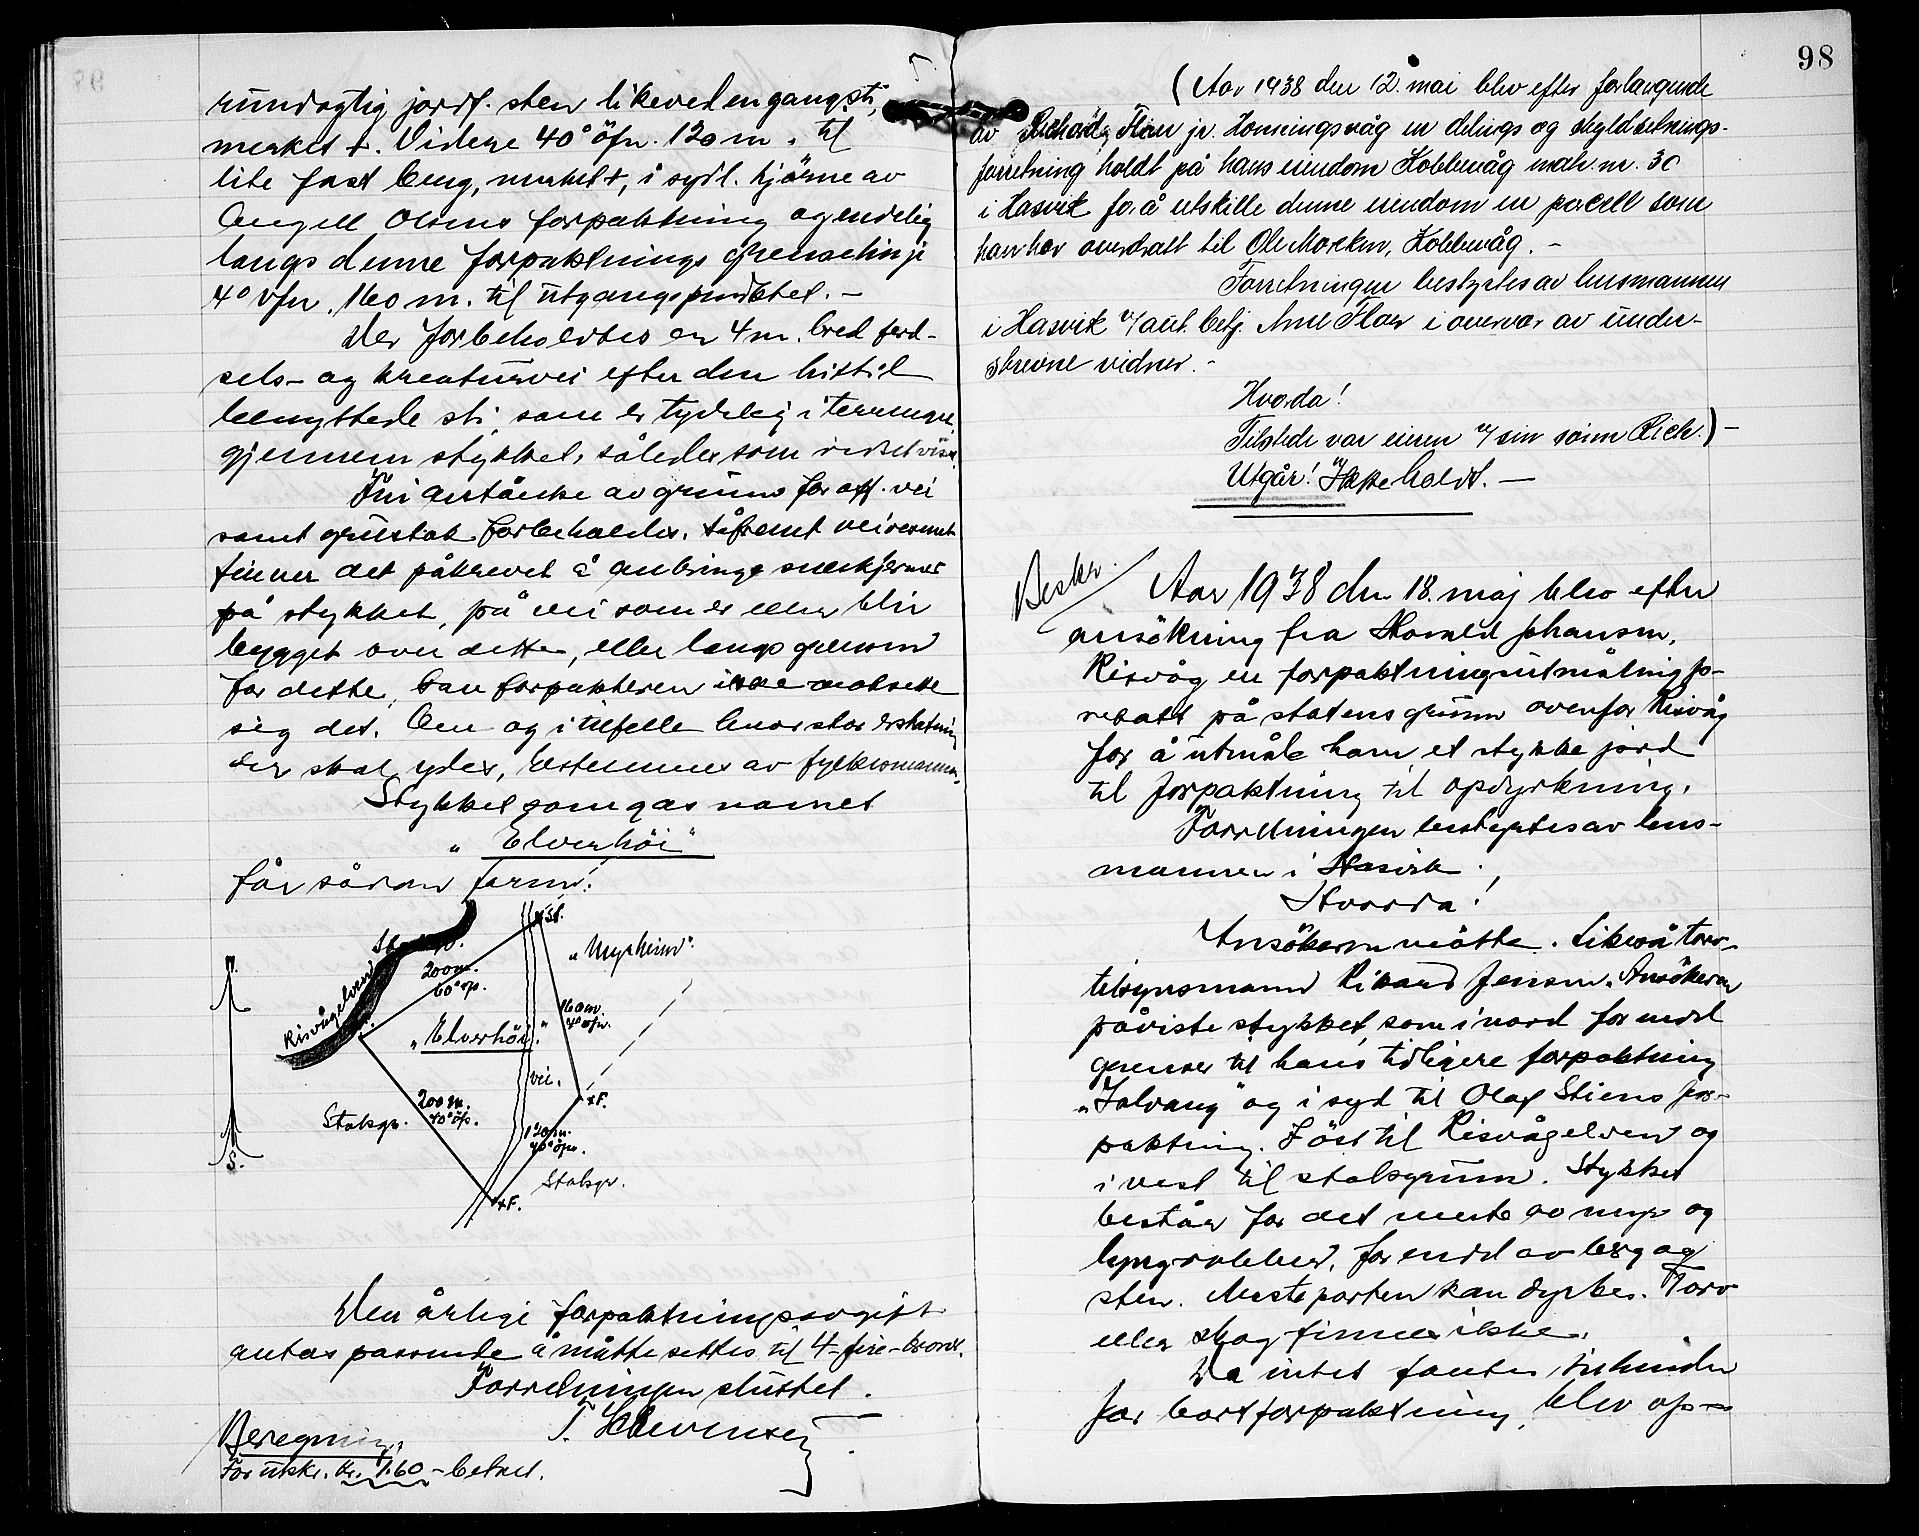 rundagtig jordf. sten likeved en gangsti,
merket +. Videre 40° öfn. 120 m. til
lite fast berg, merket +, i sydl. hjörne av
Angell Olsens forpaktning og endelig
langs denne forpaktnings grenselinje
4° vfn. 160 m. til utgangspunktet. –
Der forbeholdes en 4 m. bred ferd-
sels- og kreaturvei efter den hittil
benyttede sti, som er tydelig i terrenget
gjennem stykket, således som
Fri avståelse av grunn for off. vei
samt grustak forbeholdes. Såfremt veivesenet
finner det påkrevet å anbringe sneskjermer
på stykket, på vei som er eller blir
bygget over dette, eller langs grensen
for dette, kan forpakteren ikke motsette
sig det. Om og i tilfelle hvor stor erstatning
der skal ydes, bestemmes av fylkesmannen.
Stykket som gas navnet
"Elverhöi"
får sådan form:
N.
S.
Risvågelven
Statsgr.
200 m.
60° öp.
+St.
"Myrheim".
160 m.
4° öfn.
"Elverhöi."
vei.
+F.
200 m.
40° öp.
Statsgr.
120 m.
40° öpn.
Statsgr.
+F.
Den årlige forpaktningsavgift
antas passende å måtte settes til 4 – fire – kroner.
Forretningen sluttet.
Beregning.
For utskr. kr. 1.60 – betalt.
98
(Aar 1938 den 12. mai blev efter forlangende
av Richard Floer jr. Honningsvåg en delings og skyldsetnings-
forretning holdt på hans eiendom Kobbevåg matr. nr. 30
i Hasvik for å utskille denne eiendom en parcell som
han har overdratt til Ole Morten, Kobbevåg. –
Forretningen bestyrtes av lensmannen
i Hasvik v/ aut. betj. Arne Floer i overvær av under-
skrevne vidner. –
Hvorda!
Tilstede var eieren v/ sin sönn Rich.) –
Utgår! Ikke holdt. –
Beskr.
Aar 1938 den 18. maj blev efter
ansökning fra Harald Johansen,
Risvåg en forpaktningsutmåling fo-
retatt på statens grunn ovenfor Risvåg
for å utmåle ham et stykke jord
til forpaktning til opdyrkning.
Forretningen bestyrtes av lens-
mannen i Hasvik.
Hvorda!
Ansökeren mötte. Likeså torv-
tilsynsmann Rikard Jensen. Ansökeren
påviste stykket, som i nord for med
grenser til hans tidligere forpaktning
"Solvang" og i syd til Olaf Stiens for-
paktning. I öst til Risvågelven og
i vest til statsgrunn. Stykket
består for det meste av myr og
lyngrabber, for endel av berg og
sten. Mesteparten kan dyrkes. Torv
eller skog finnes ikke.
Da intet fantes til hinder
for bortforpaktning, blev op-